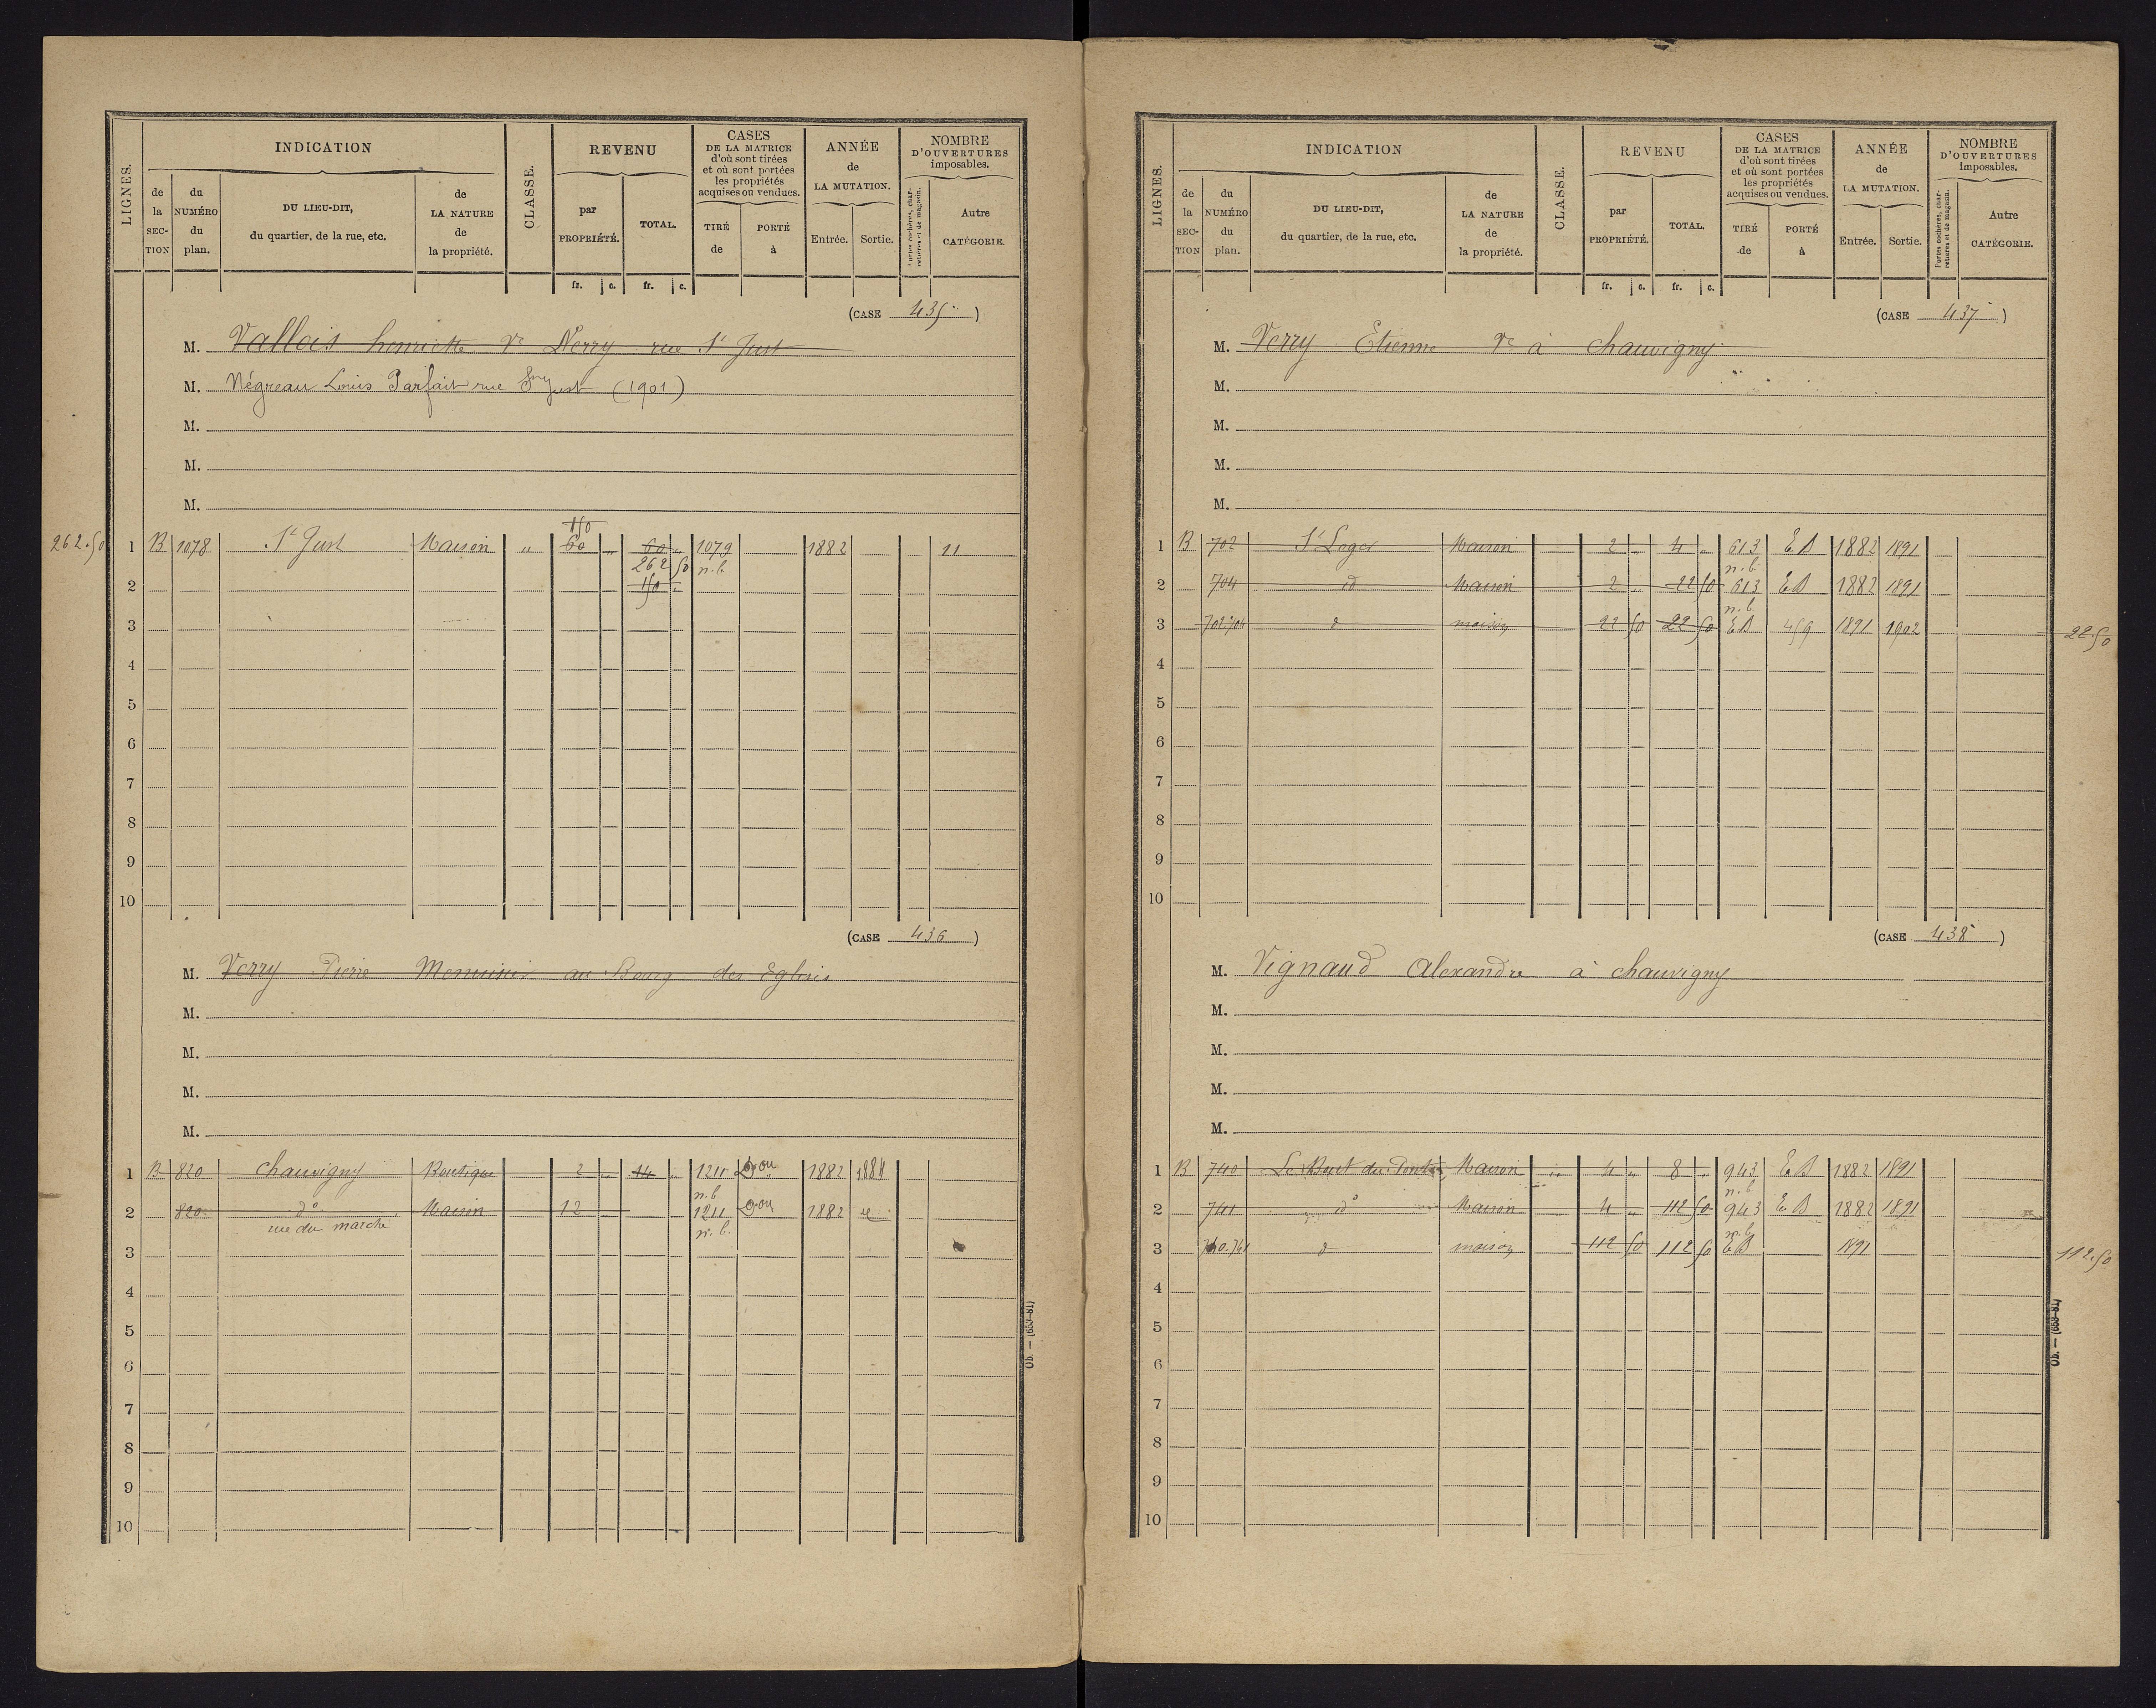 LIGNES.
INDICATION
de la SECTION
du NUMÉRO du plan.
DU LIEU-DIT, du quartier, de la rue, etc.
de LA NATURE de la propriété.
CLASSE.
REVENU
par PROPRIÉTÉ.
TOTAL.
fr. c. fr. c.
CASES DE LA MATRICE d'où sont tirées et où sont portées les propriétés acquises ou vendues.
TIRÉ de
PORTÉ à
ANNÉE de LA MUTATION.
Entrée. Sortie.
NOMBRE D'OUVERTURES imposables.
Portes cochères, charretières et de magasin.
Autre CATÉGORIE.
(CASE 435)
M. Vallois henriette Ve Verry rue St Just
M. Négreau Louis Parfait rue St Just (1901)
M.
M.
M.
150
262.50 1 B 1078 St Just Maison " 60 " 60 " 1079 1882 11
262 50 n.b.
2 150 "
3
4
5
6
7
8
9
10
(CASE 436)
M. Verry Pierre Menuisier au Bourg des Eglises
M.
M.
M.
M.
1 B 820 chauvigny Boutique 2 " 14 " 1211 1882 1884
n.b
2 820 do Maison 12 1211 1882
rue du marché n.b.
3
4
5
6
7
8
9
10
Ob. — (653-81)
LIGNES.
INDICATION
de la SECTION
du NUMÉRO du plan.
DU LIEU-DIT, du quartier, de la rue, etc.
de LA NATURE de la propriété.
CLASSE.
REVENU
par PROPRIÉTÉ.
TOTAL.
fr. c. fr. c.
CASES DE LA MATRICE d'où sont tirées et où sont portées les propriétés acquises ou vendues.
TIRÉ de
PORTÉ à
ANNÉE de LA MUTATION.
Entrée. Sortie.
NOMBRE D'OUVERTURES imposables.
Portes cochères, charretières et de magasin.
Autre CATÉGORIE.
(CASE 437)
M. Verry Etienne Ve à chauvigny
M.
M.
M.
M.
1 B 702 St Leger Maison 2 " 4 " 613 E B 1882 1891
n.b.
2 704 id Maison 2 " 22 50 613 E B 1882 1891
n.b
3 702.704 d maison 22 50 22 50 E B 459 1891 1902 22.50
4
5
6
7
8
9
10
(CASE 438)
M. Vignaud Alexandre à chauvigny
M.
M.
M.
M.
1 B 740 Le Bout du Pont Maison " 4 " 8 " 943 E B 1882 1891
n.b
2 741 id Maison 4 " 112 50 943 E B 1882 1891
n.b
3 d maison 112 50 112 50 E B 1891 112.50
4
5
6
7
8
9
10
Ob. — (653-81)